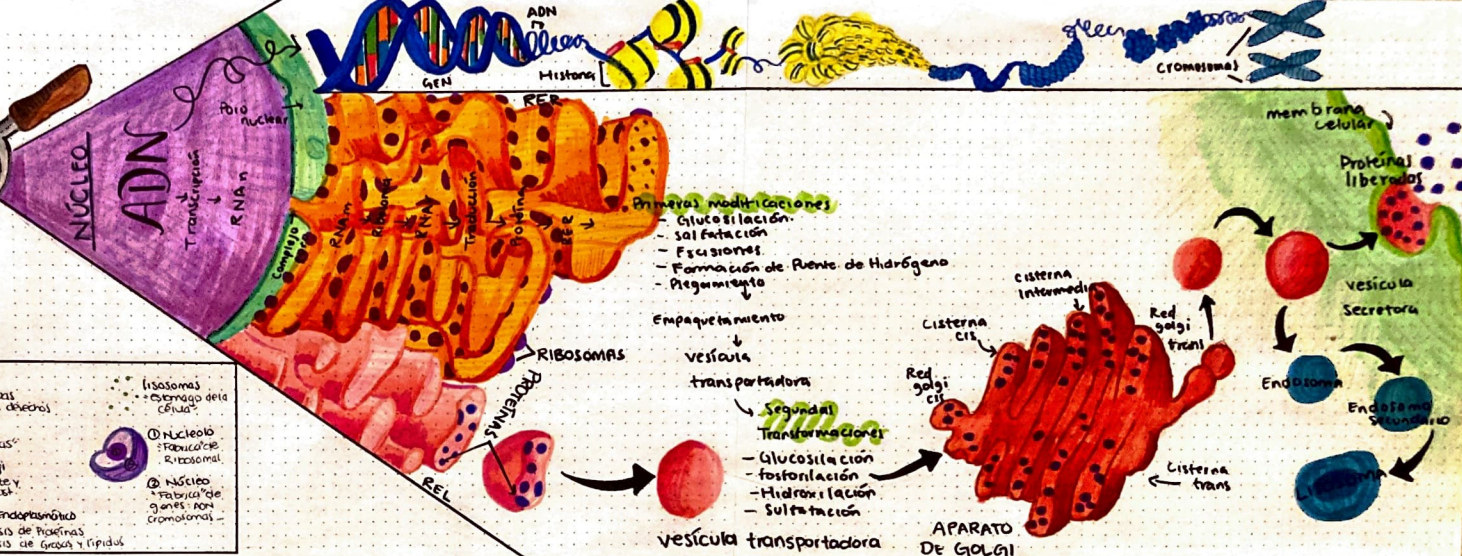 ADN
GEN
Histona
cromosomas
NÚCLEO
ADN
Transcripción
RNAm
Poro
nuclear
Complejo
RER
RNAm
Ribosoma
RNAt
Traducción
Proteína
RER
Primeras modificaciones
- Glucosilación.
- Salfatación
- Escisiones
- Formación de Puente de Hidrógeno
- Plegamiento
Empaquetamiento
vesícula
transportadora
Segundas
Transformaciones
- Glucosilación
- fosforilación
- Hidroxilación
- Sulfatación
RIBOSOMAS
PROTEÍNAS
REL
vesícula transportadora
Red
golgi
cis
Cisterna
cis
Cisterna
Intermedia
Red
golgi
trans
Cisterna
trans
APARATO
DE GOLGI
membrana
celular
Proteínas
liberadas
vesícula
Secretora
Endosoma
Endosoma
Secundario
LISOSOMA
lisosomas
estomago de la
célula"
① Nucleolo
"Fabrica" de
Ribosomal
② Núcleo
"Fabrica" de
genes: ADN
cromosomas
desechos
Endoplasmático
sis de Proteínas
sis de Grasas y lípidos